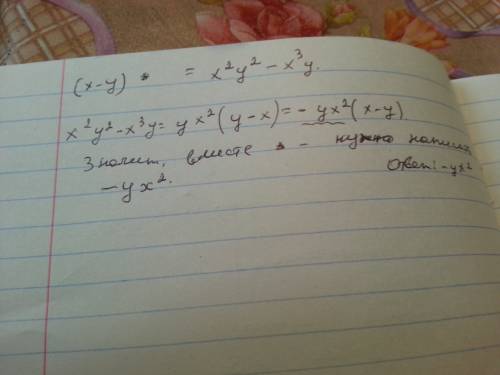 (x-y) * = x²y² - x³y.
x²y² - x³y = yx²(y-x) = - yx²(x-y).
Значит, вместе * - нужно написать
- yx².
Ответ: -yx²